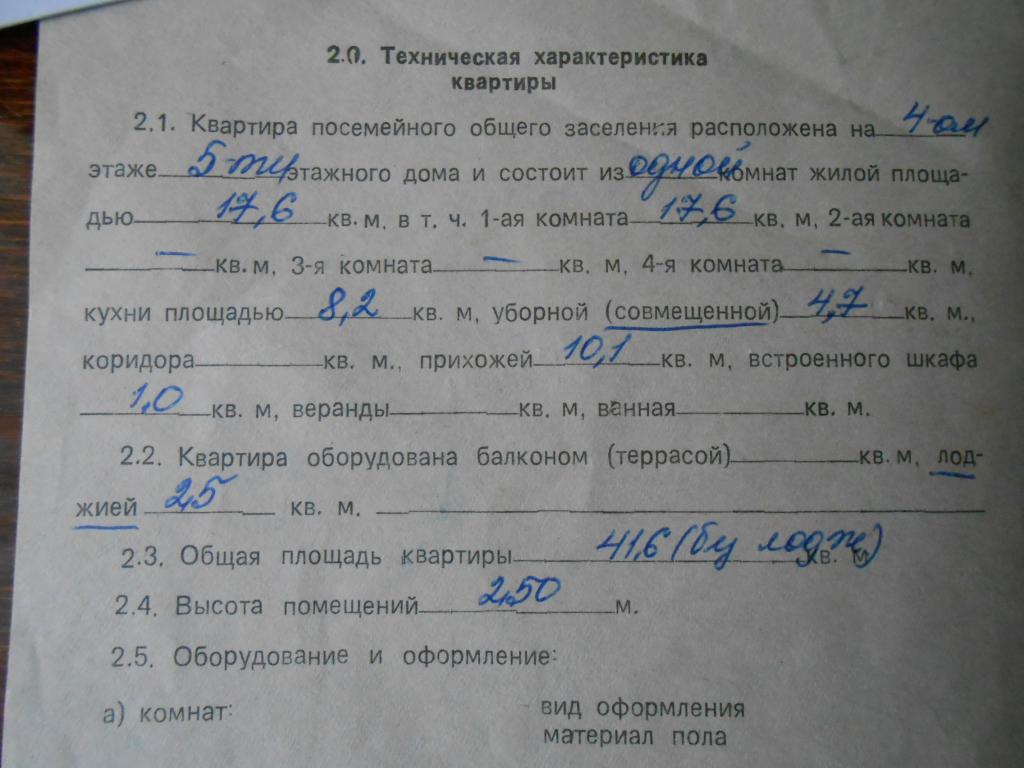 2.0. Техническая характеристика
квартиры
2.1. Квартира посемейного общего заселения расположена на 4-ом
этаже 5-ти этажного дома и состоит из одной комнат жилой площа-
дью 17,6 кв. м, в т. ч. 1-ая комната 17,6 кв. м, 2-ая комната
— кв. м, 3-я комната — кв. м, 4-я комната — кв. м,
кухни площадью 8,2 кв. м, уборной (совмещенной) 4,7 кв. м.,
коридора кв. м., прихожей 10,1 кв. м, встроенного шкафа
1,0 кв. м, веранды кв. м, ванная кв. м.
2.2. Квартира оборудована балконом (террасой) кв. м, лод-
жией 2,5 кв. м.
2.3. Общая площадь квартиры 41,6 (бу лодж) кв. м
2.4. Высота помещений 2,50 м.
2.5. Оборудование и оформление:
а) комнат: вид оформления
материал пола